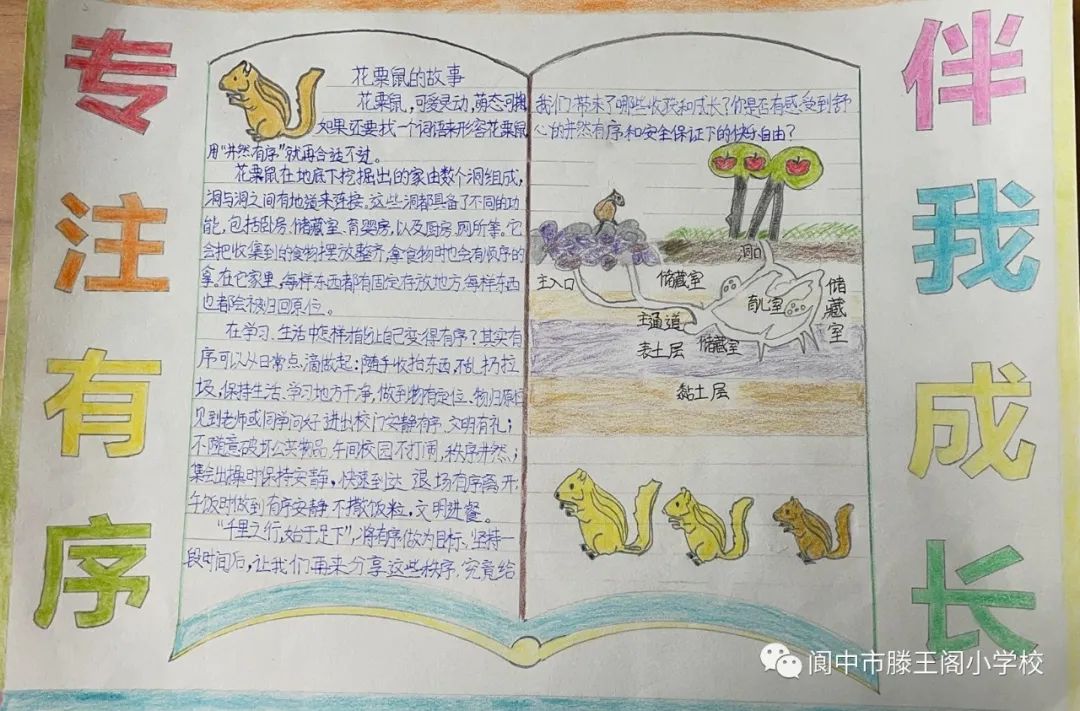 专注有序
花栗鼠的故事
花栗鼠,可爱灵动,萌态可掬
如果还要找一个词语来形容花栗鼠
用“井然有序”就再合适不过。
花栗鼠在地底下挖掘出的家由数个洞组成,
洞与洞之间有地道来连接。这些洞都具备了不同的功
能,包括卧房、储藏室、育婴房,以及厨房、厕所等,它
会把收集到的食物摆放整齐,拿食物时也会有顺序的
拿,在它家里,每样东西都有固定存放地方,每样东西
也都会被归回原位。
在学习、生活中怎样才能让自己变得有序?其实有
序可以从日常点滴做起:随手收拾东西,不乱扔垃
圾,保持生活、学习地方干净,做到物有定位、物归原位
见到老师或同学问好,进出校门安静有序,文明有礼;
不随意破坏公共物品,午间校园不打闹,秩序井然;
集会出操时保持安静,快速到达,退场有序离开;
午饭时做到有序安静,不撒饭粒,文明进餐。
“千里之行,始于足下”,将有序做为目标,坚持一
段时间后,让我们再来分享这些秩序,究竟给
我们带来了哪些收获和成长?你是否有感受到舒
心的井然有序和安全保证下的快乐自由?
洞口
主入口
储藏室
育儿室
储藏室
主通道
储藏室
表土层
黏土层
伴我成长
阆中市滕王阁小学校